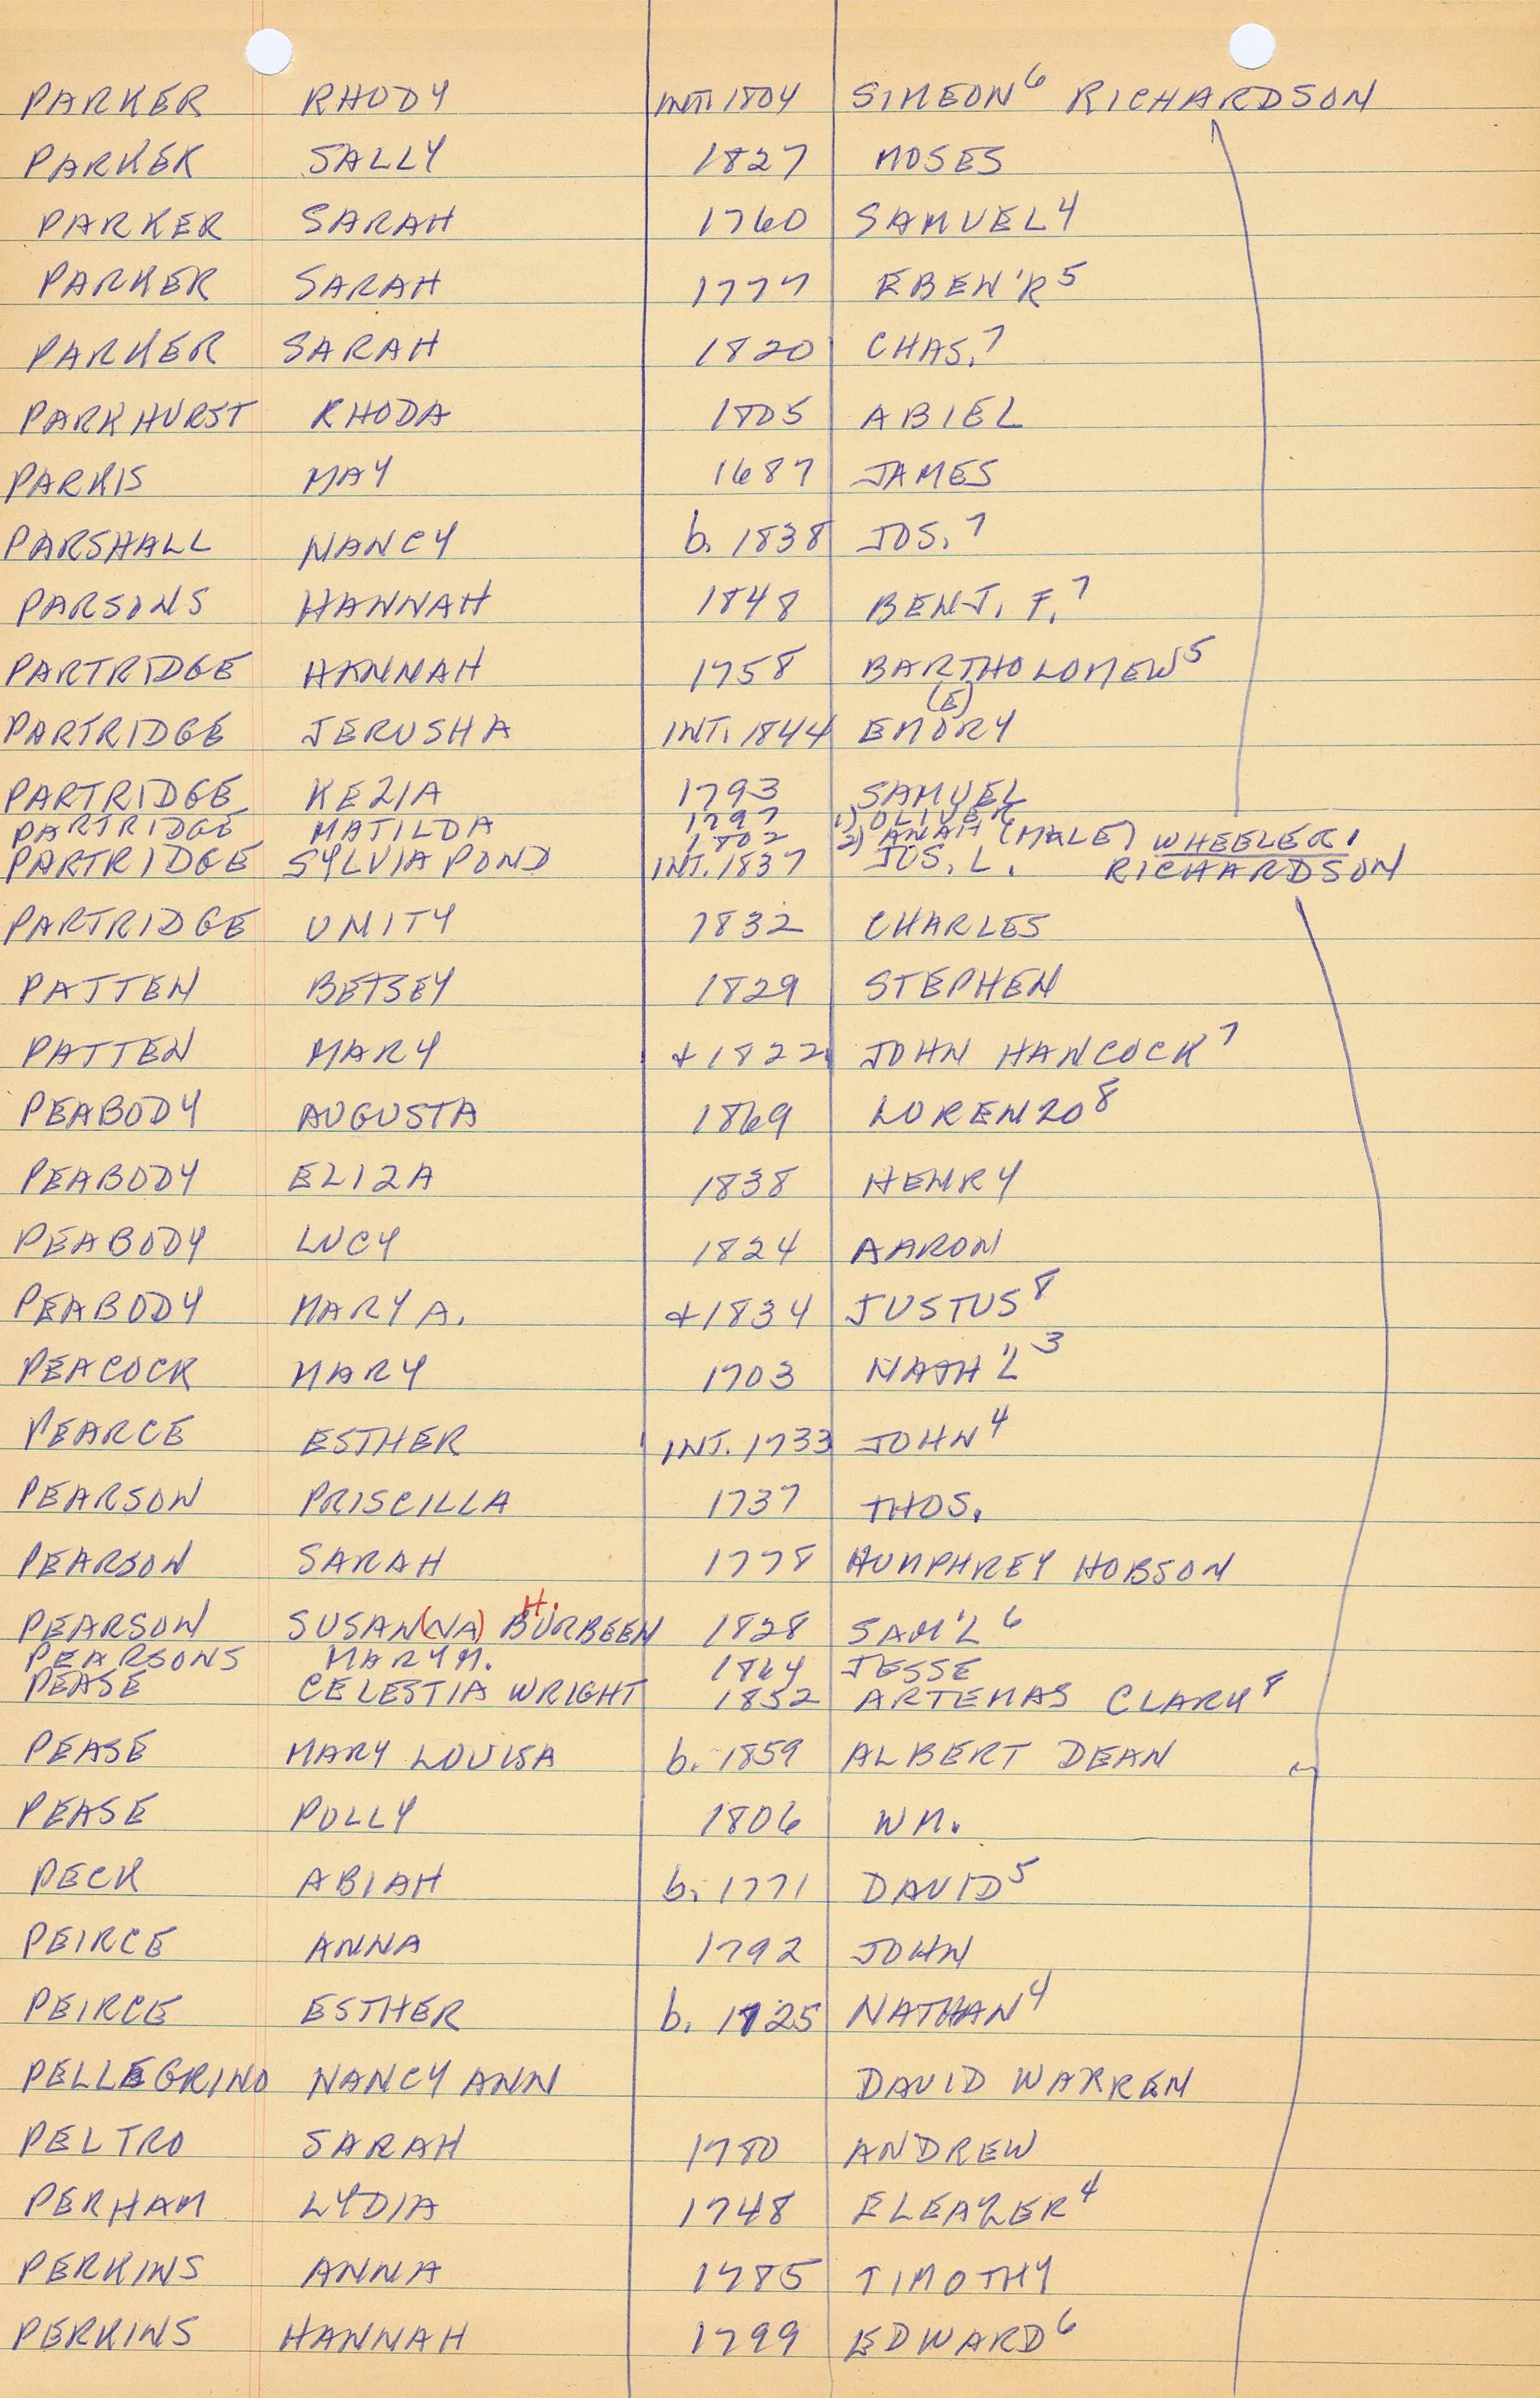 PARKER RHODY INT. 1804 SIMEON⁶ RICHARDSON
PARKER SALLY 1827 MOSES
PARKER SARAH 1760 SAMUEL⁴
PARKER SARAH 1777 EBEN'R⁵
PARKER SARAH 1820 CHAS.⁷
PARKHURST RHODA 1805 ABIEL
PARKIS MAY 1687 JAMES
PARSHALL NANCY b. 1838 JOS.⁷
PARSONS HANNAH 1848 BENJ. F.⁷
PARTRIDGE HANNAH 1758 BARTHOLOMEW⁵
(E)
PARTRIDGE JERUSHA INT. 1844 EMORY
PARTRIDGE KEZIA 1793 SAMUEL
PARTRIDGE MATILDA 1797 1) OLIVER
1802 2) ANAH (MALE) WHEELER!
PARTRIDGE SYLVIA POND INT. 1837 JOS. L. RICHARDSON
PARTRIDGE UNITY 1832 CHARLES
PATTEN BETSEY 1829 STEPHEN
PATTEN MARY + 1822 JOHN HANCOCK⁷
PEABODY AUGUSTA 1869 LORENZO⁸
PEABODY ELIZA 1838 HENRY
PEABODY LUCY 1824 AARON
PEABODY MARY A. +1834 JUSTUS⁸
PEACOCK MARY 1703 NATH'L³
PEARCE ESTHER INT. 1733 JOHN⁴
PEARSON PRISCILLA 1737 THOS.
PEARSON SARAH 1778 HUMPHREY HOBSON
H.
PEARSON SUSAN(NA) BURBEEN 1828 SAM'L⁶
PEARSONS MARY M. 1864 JESSE
PEASE CELESTIA WRIGHT 1852 ARTEMAS CLARK⁸
PEASE MARY LOUISA b. 1859 ALBERT DEAN
PEASE POLLY 1806 WM.
PECK ABIAH b. 1771 DAVID⁵
PEIRCE ANNA 1792 JOHN
PEIRCE ESTHER b. 1725 NATHAN⁴
PELLEGRINO NANCY ANN DAVID WARREN
PELTRO SARAH 1780 ANDREW
PERHAM LYDIA 1748 ELEAZER⁴
PERKINS ANNA 1785 TIMOTHY
PERKINS HANNAH 1799 EDWARD⁶